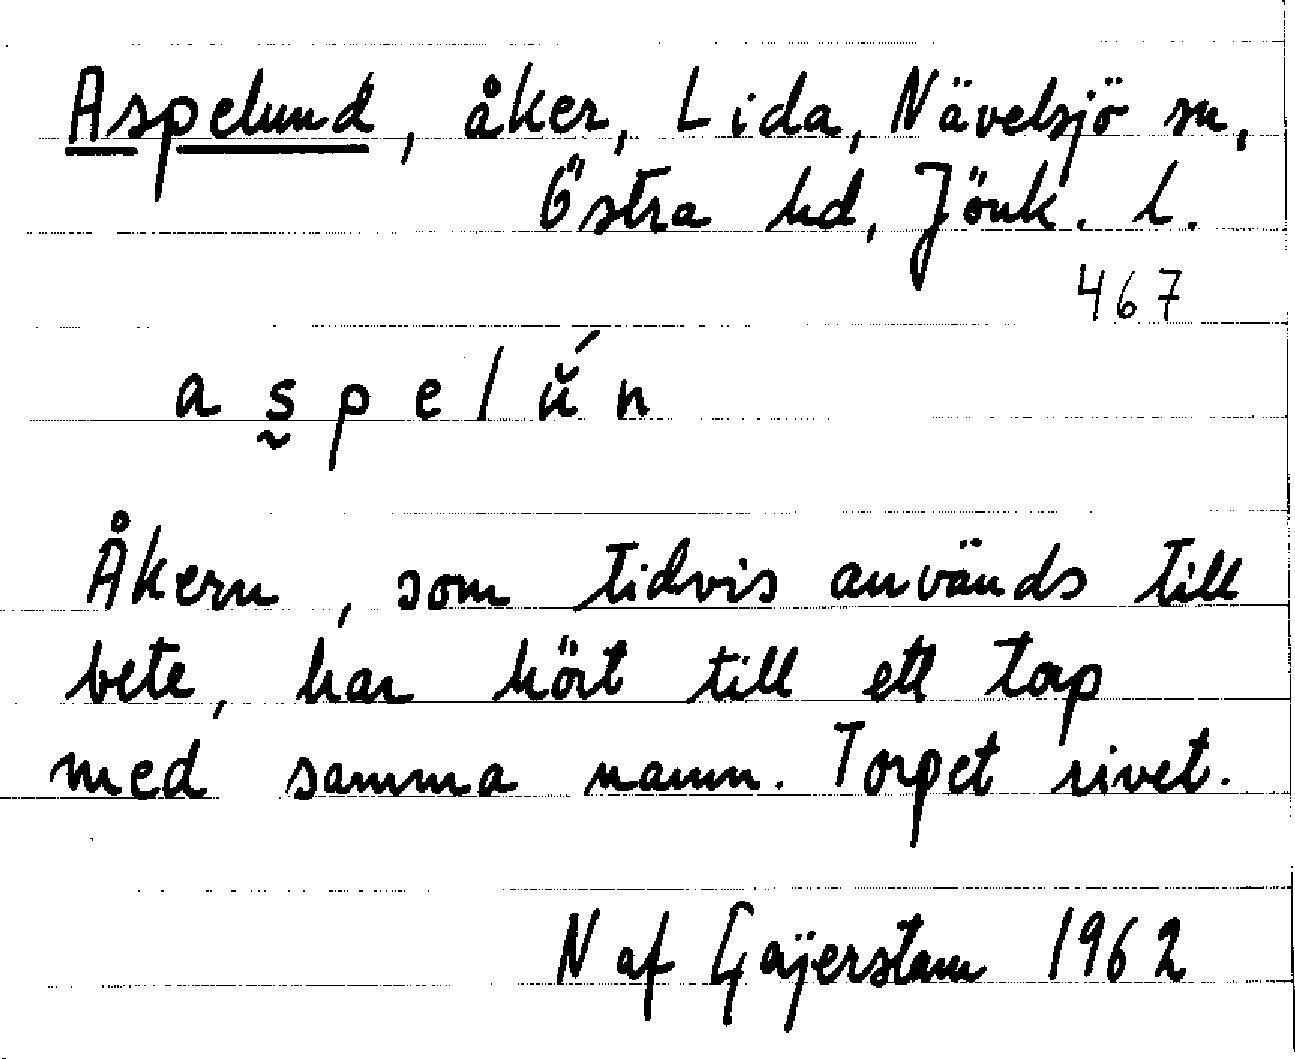 Aspelund, åker, Lida, Nävelsjö sn,
Östra hd, Jönk. l.
467
a s̰ p e l ŭ́ n
Åkern, som tidvis används till
bete, har hört till ett torp
med samma namn. Torpet rivet.
N af Gajerstam 1962